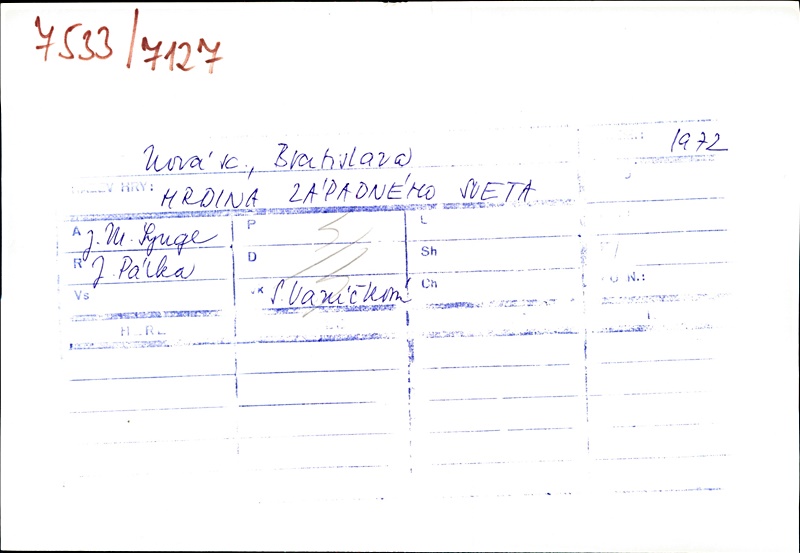 7533/7127
1972
Nová sc., Bratislava
HRY: HRDINA ZÁPADNÉHO SVETA
A J. M. Synge P L
R J. Pálka D Sh
Vs VK S. Vaníčková Ch
N.: